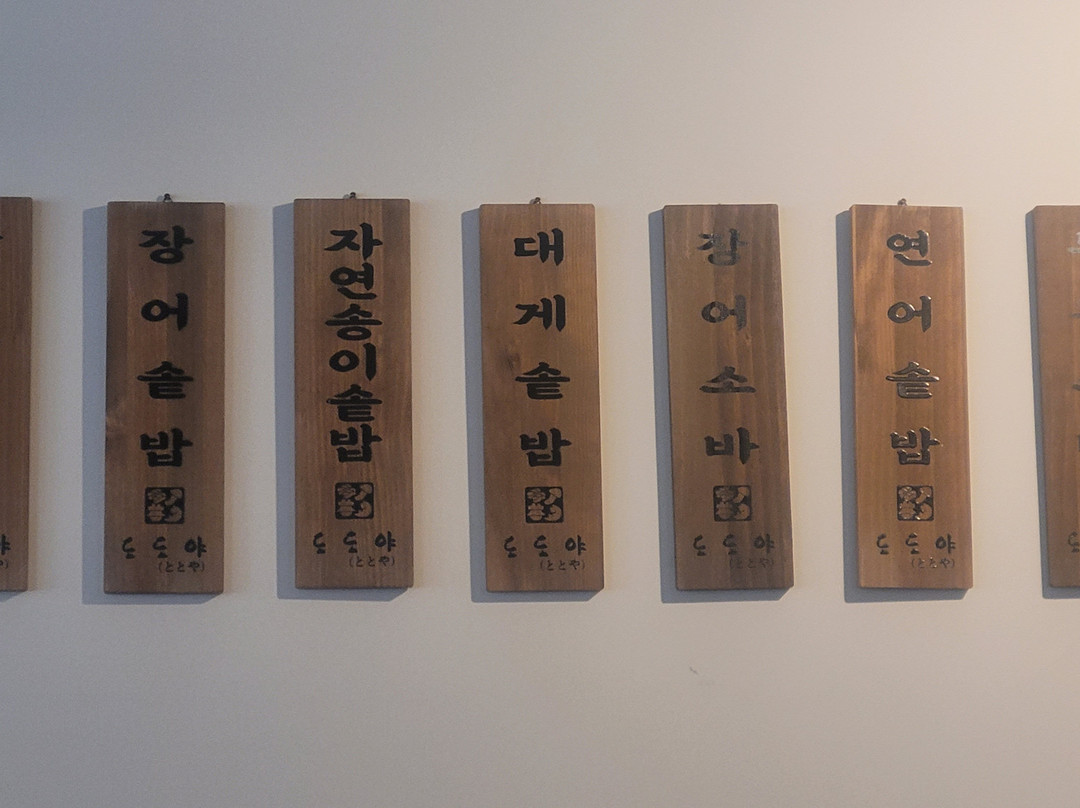 장어솥밥
도도야
(ととや)
자연송이솥밥
도도야
(ととや)
대게솥밥
도도야
(ととや)
장어소바
도도야
(ととや)
연어솥밥
도도야
(ととや)